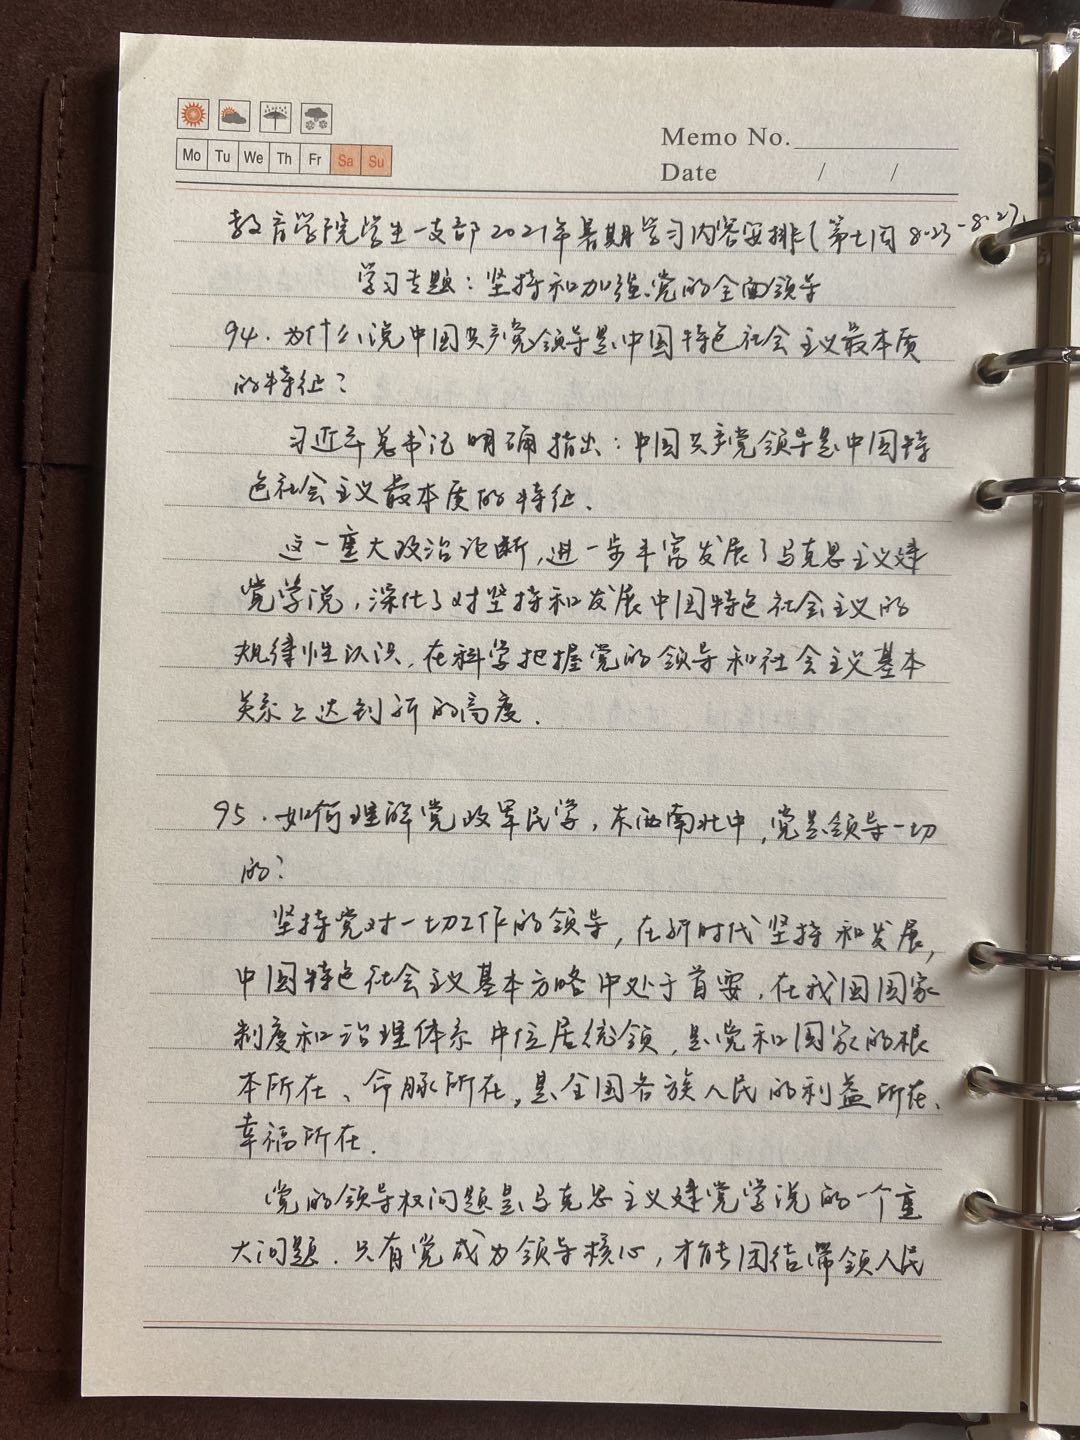 Memo No.
Mo Tu We Th Fr Sa Su
Date / /
教育学院学生一支部2021年暑期学习内容安排(第七周 8.23-8.27)
学习专题：坚持和加强党的全面领导
94.为什么说中国共产党领导是中国特色社会主义最本质
的特征?
习近平总书记明确指出：中国共产党领导是中国特
色社会主义最本质的特征.
这一重大政治论断,进一步丰富发展了马克思主义建
党学说,深化了对坚持和发展中国特色社会主义的
规律性认识,在科学把握党的领导和社会主义基本
关系上达到新的高度.
95.如何理解党政军民学,东西南北中,党是领导一切
的?
坚持党对一切工作的领导,在新时代坚持和发展,
中国特色社会主义基本方略中处于首要,在我国国家
制度和治理体系中位居统领,是党和国家的根
本所在、命脉所在,是全国各族人民的利益所在、
幸福所在.
党的领导权问题是马克思主义建党学说的一个重
大问题.只有党成为领导核心,才能团结带领人民